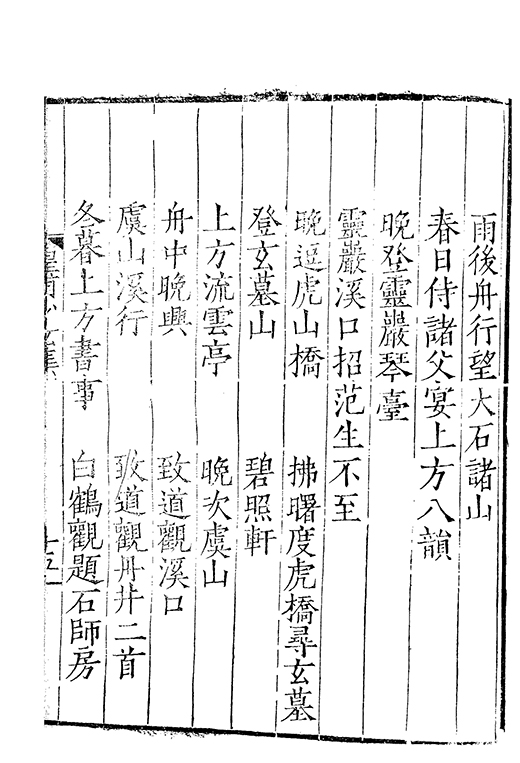 雨後舟行望大石諸山
春日侍諸父宴上方八韻
晚登靈巖琴臺
靈巖溪口招范生不至
晚逗虎山橋　拂曙度虎橋尋玄墓
登玄墓山　碧照軒
上方流雲亭　晚次虞山
舟中晚興　致道觀溪口
虞山溪行　致道觀丹井二首
冬暮上方書事　白鶴觀題石師房
十五